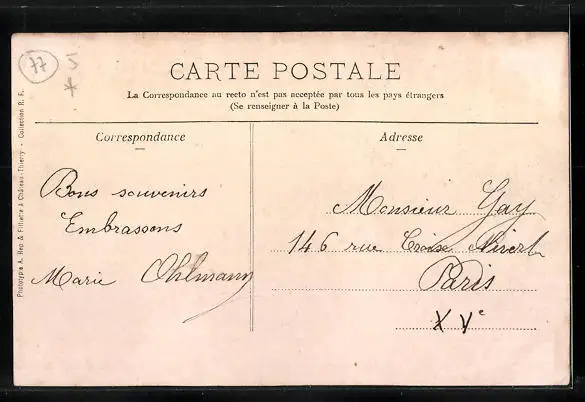 77
5
*
CARTE POSTALE
La Correspondance au recto n'est pas acceptée par tous les pays étrangers
(Se renseigner à la Poste)
Correspondance
Bons souvenirs
Embrassons
Marie Ohlmann
Adresse
Monsieur Gay
146 rue Croix Nivert
Paris
XVe
Phototypie A. Rep & Filliette à Château-Thierry - Collection R. F.